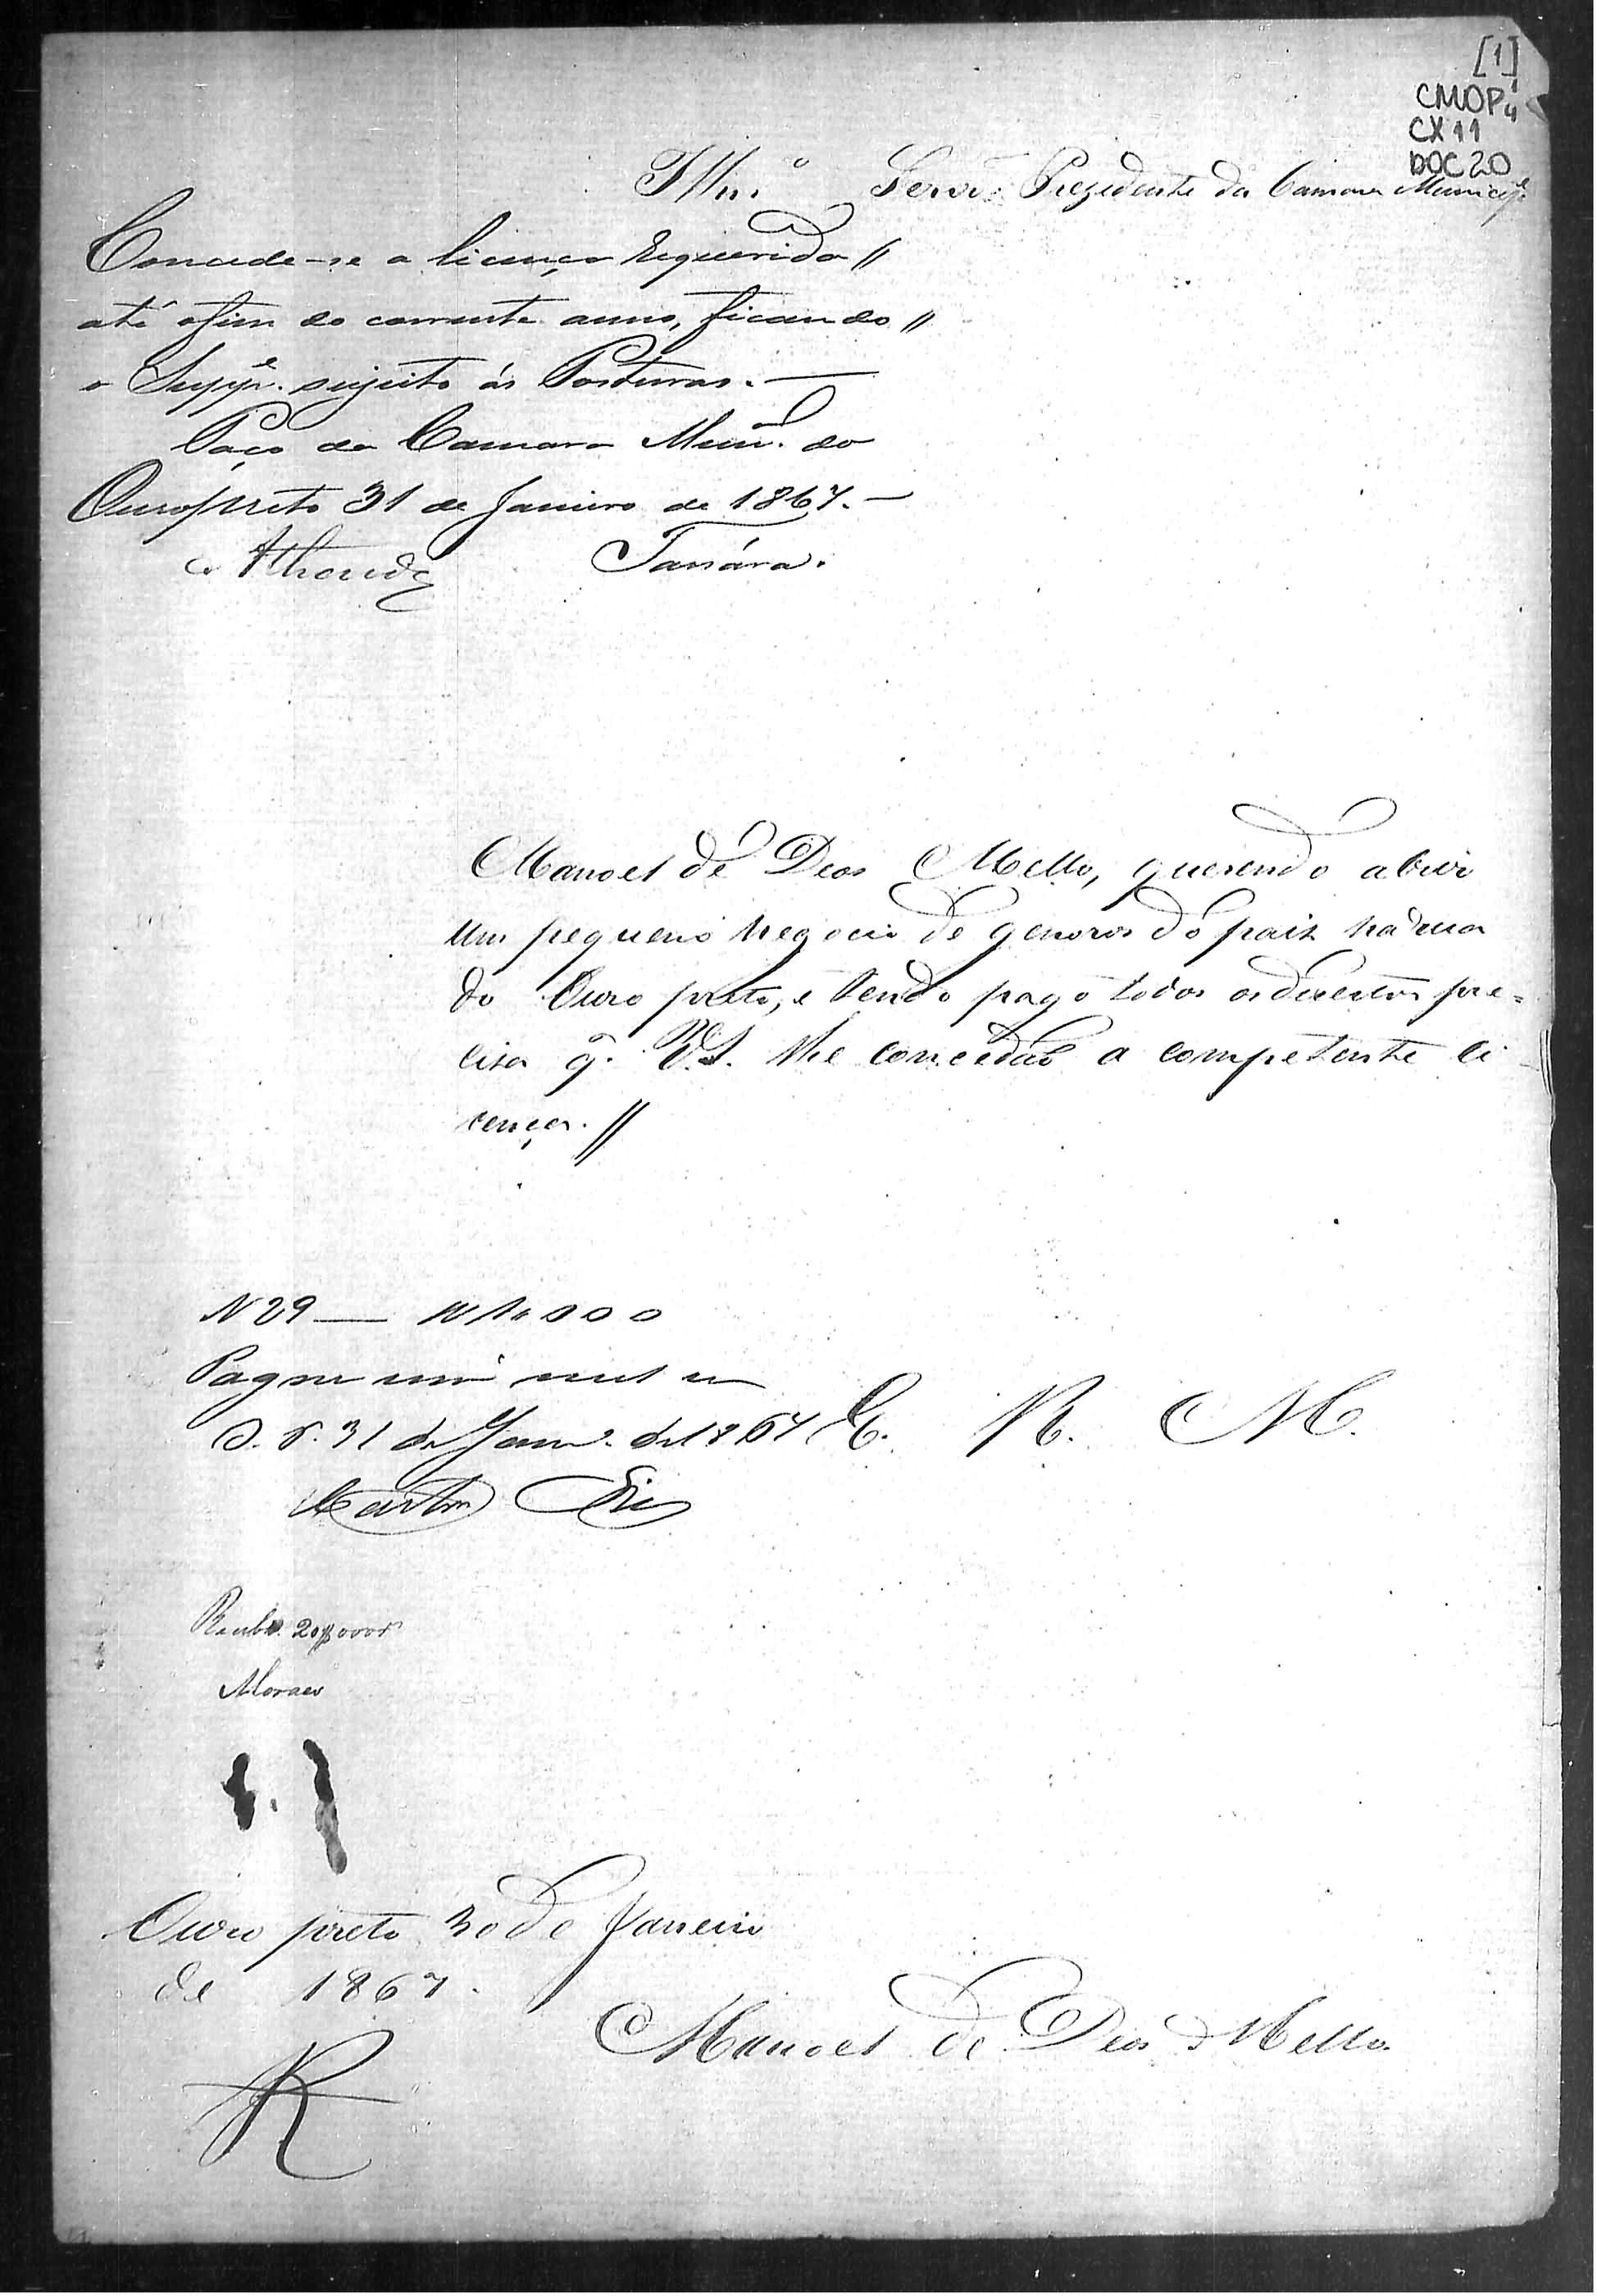 [1]
CMOP
CX 11
DOC 20
Illm.o Senr. Prezidente da Camara Municipl.
Concede-se a licença requerida //
até o fim do corrente anno, ficando //
o Suppe. sujeito ás Posturas. —
Paço da Camara Mun. do
Ouropreto 31 de Janeiro de 1867. —
Manoel de Deos Mello, querendo abrir
um pequeno negocio de generos do paiz na rua
do Ouro preto, e tendo pago todos os direitos pre=
cisa q. V.S. lhe conceda a competente li
cença. //
N 29 —
Pagou mil reis
O. P. 31 de Janr. de 1867
E. R. M.
Recebi 20$000
Moraes
Ouro preto 30 de Janeiro
de 1867.
Manoel de Deos Mello